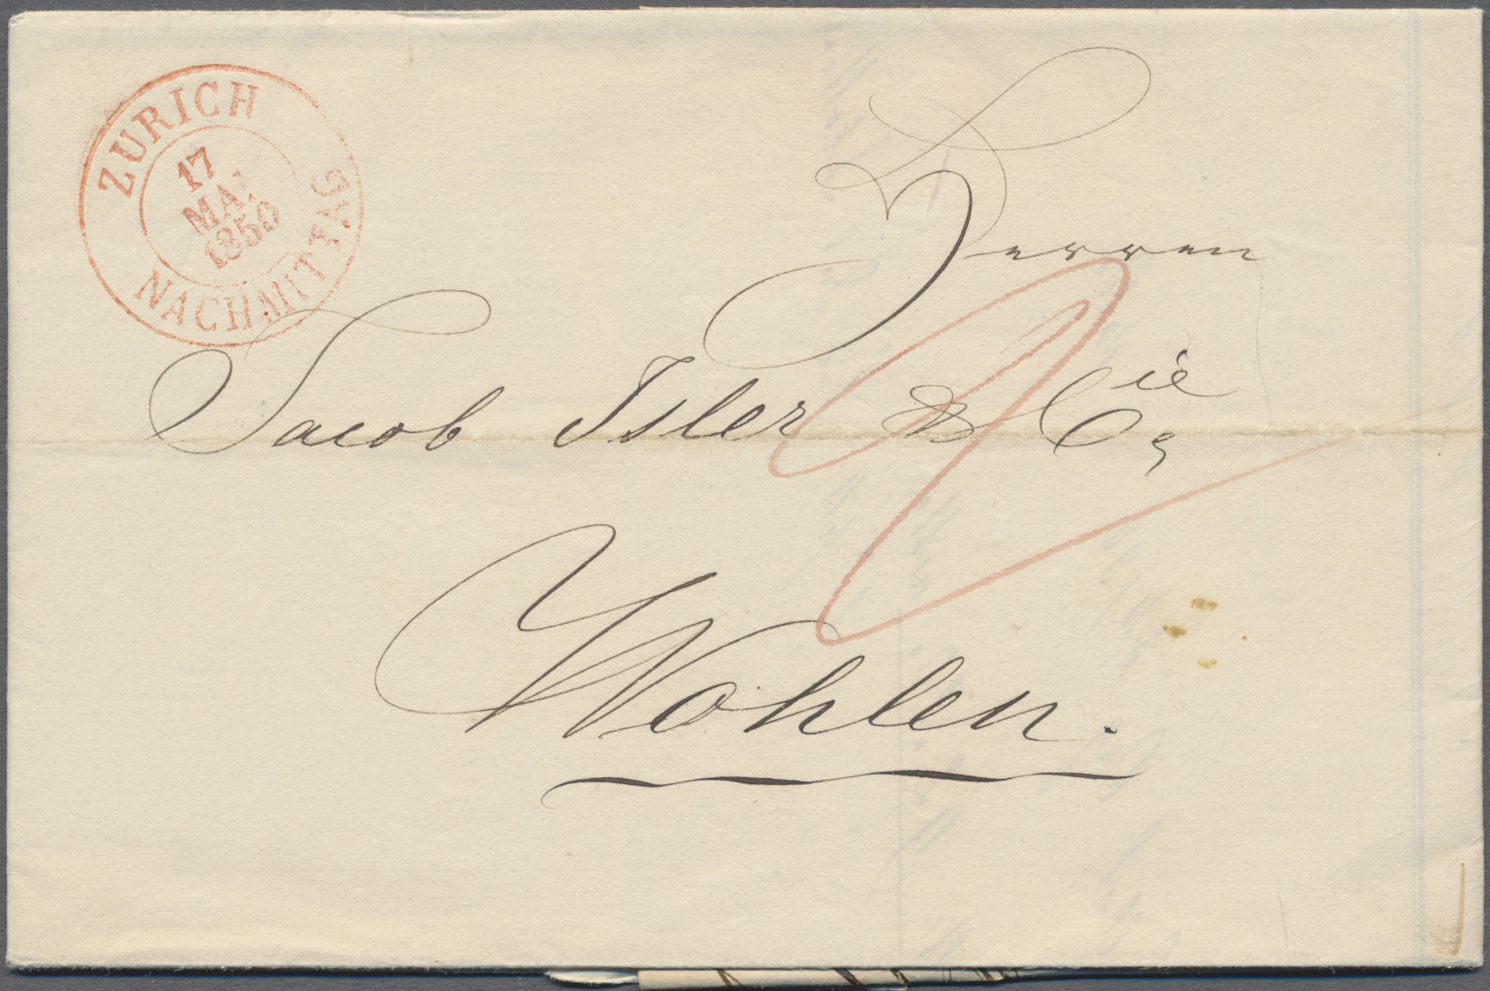 ZURICH
17
MAI
1850
NACHMITTAG
Herren
Jacob Isler & Cie,
Wohlen.